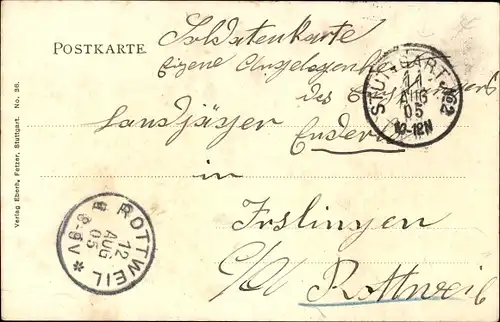 POSTKARTE.
Soldatenkarte
Eigene Angelegenheit
des Empfängers
STUTTGART No2
11
AUG
05
12N
Landjäger Enderle
in
Irslingen
O/A Rottweil
ROTTWEIL
12
AUG
05
8-9V
Verlag Eberh. Fetzer, Stuttgart. No. 36.